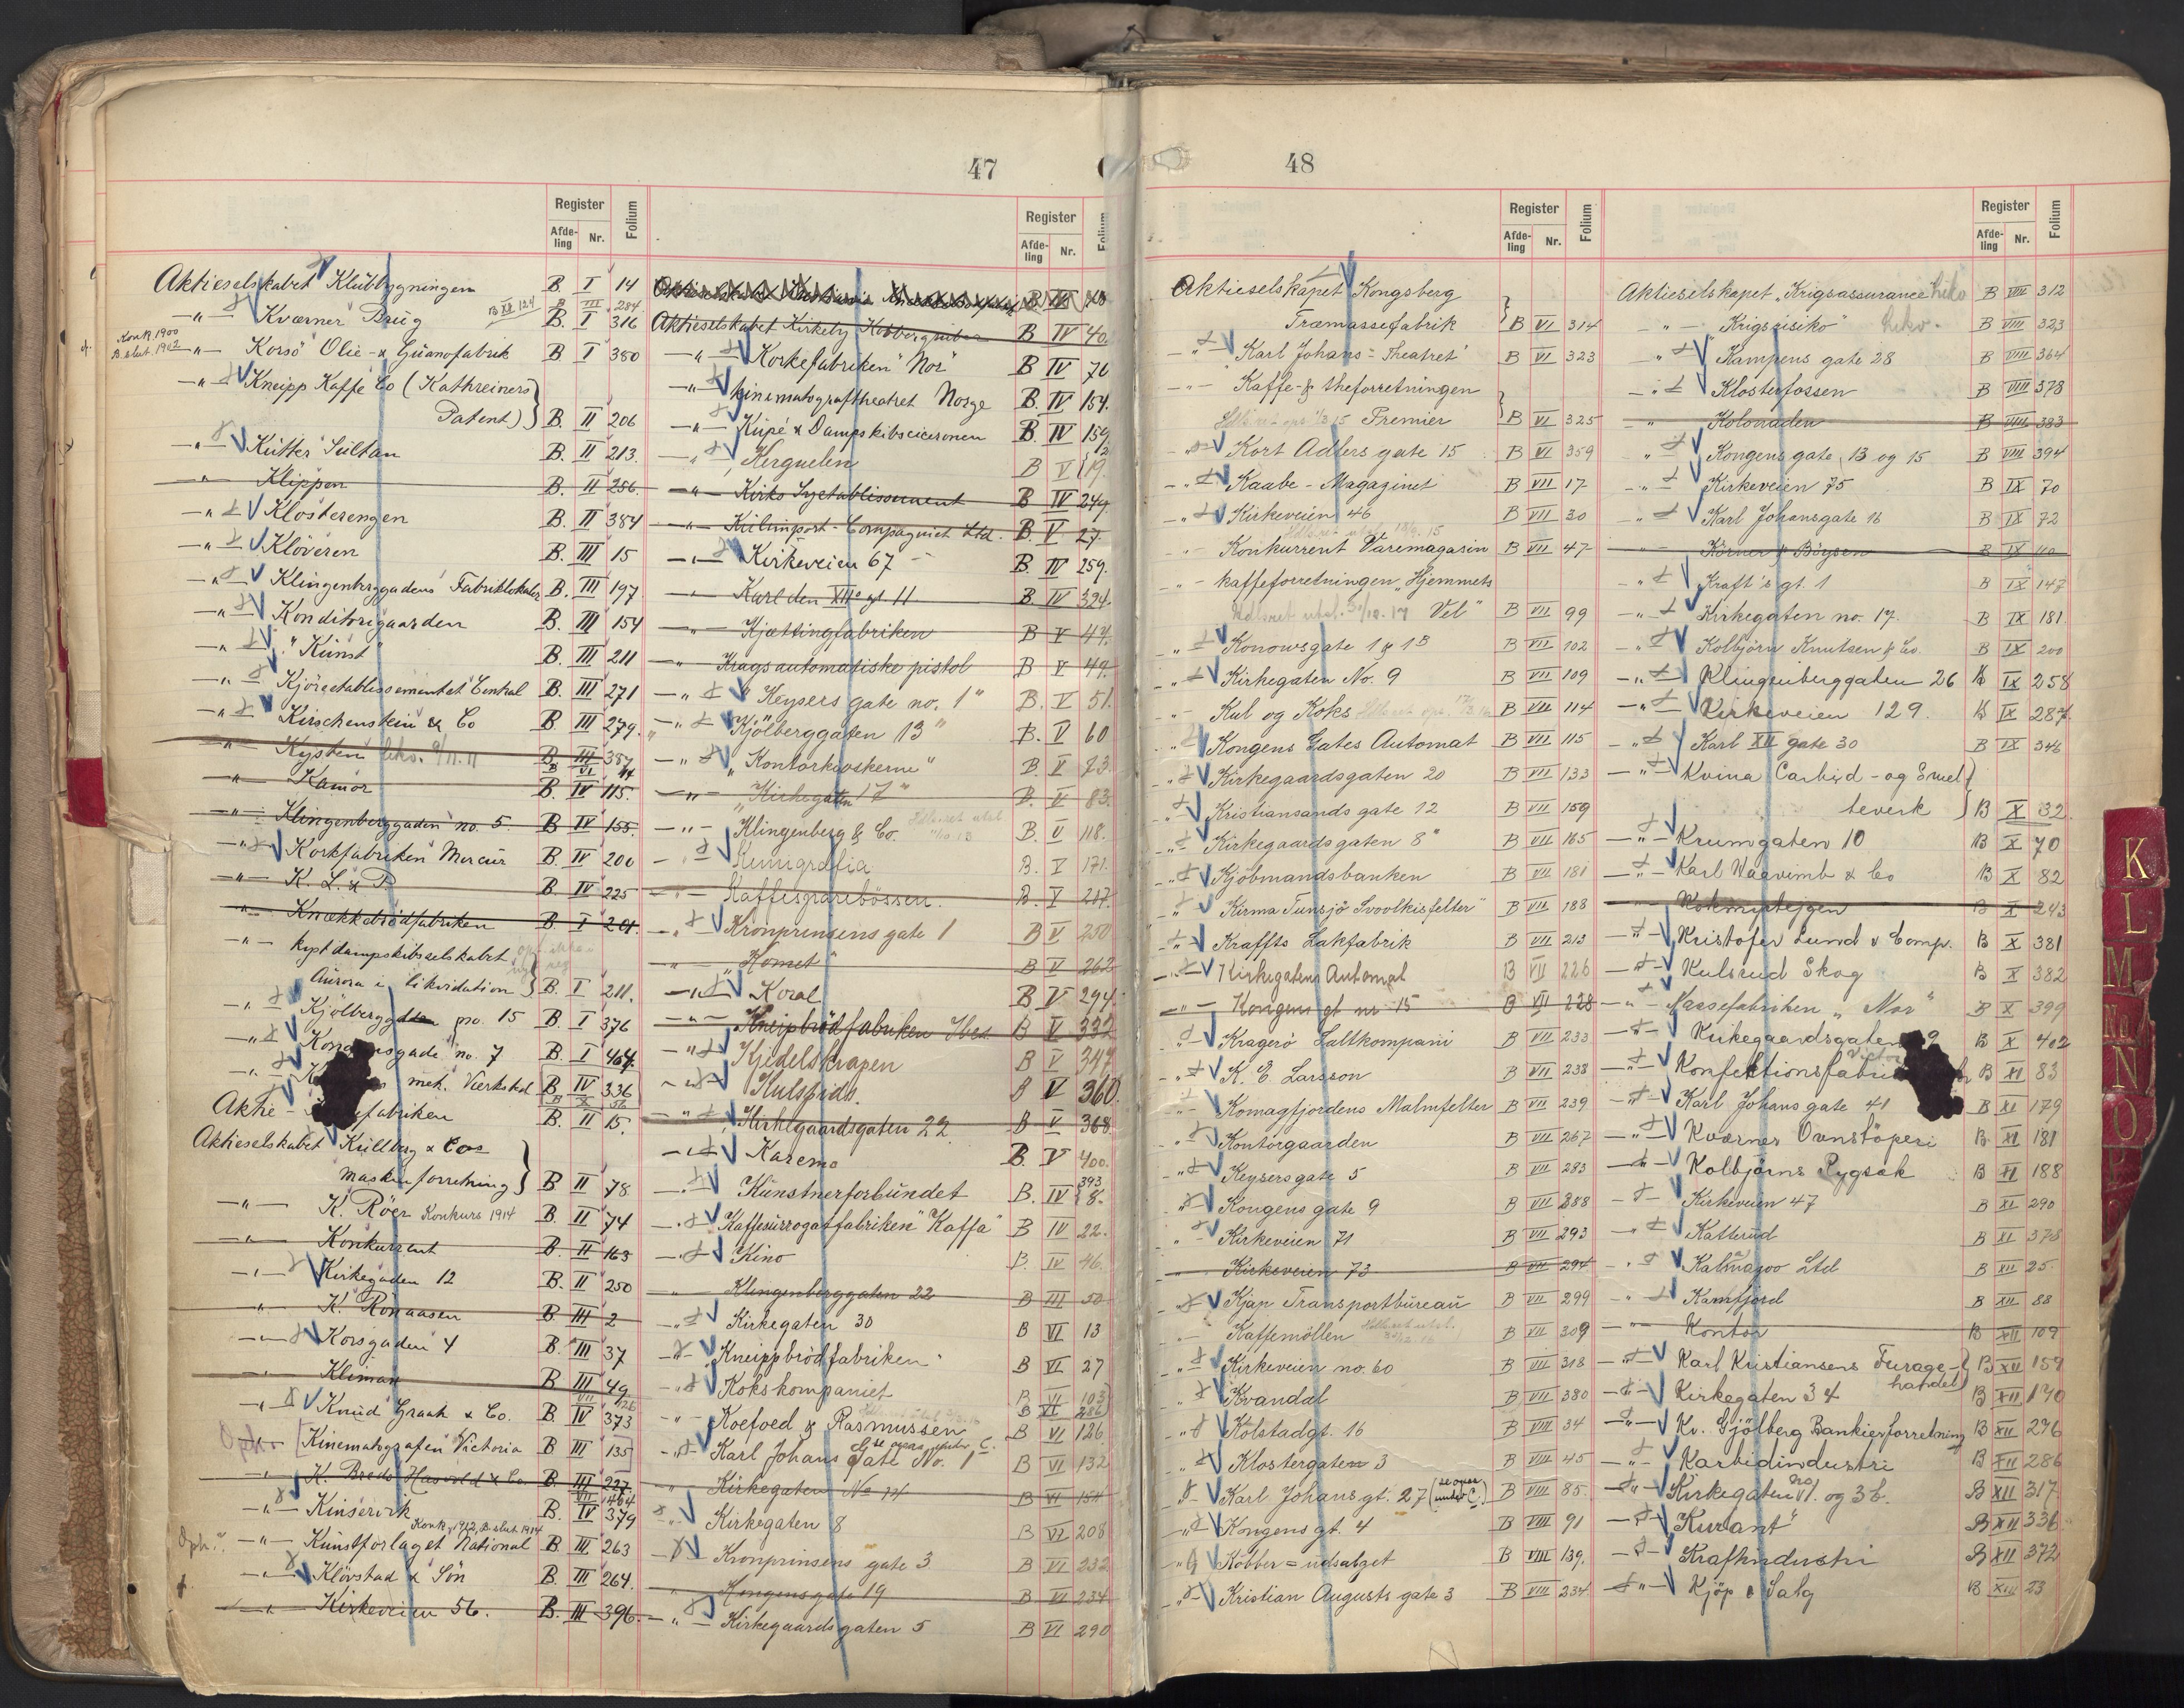 47
Register
Afde-
ling
Nr.
Folium
Aktieselskabet Klübbygningen B I 14
B XI 124 B III 284
-"- Kværner Brüg B. I 316
Konk. 1900
B. slut. 1902
-"- Korsö Olie- & Güanofabrik B I 380
-"- Kneipp Kaffe Co (Kathreiners
Patent) B. II 206
-"- Kütter Sültan B. II 213.
-"- Klippen B. II 256.
-"- Klosterengen B. II 384
-"- Klöveren B. III 15
-"- Klingenberggadens Fabriklokaler B. III 197
-"- Konditorigaarden B. III 154
-"- "Künst" B. III 211
-"- Kjöreetablissementet Central B. III 271
-"- Kirschenstein & Co B III 279.
-"- Kysten B III 387
B VI
-"- Kamor B. IV 115.
-"- Klingenberggaden no. 5. B IV 155.
-"- Korkfabriken Mercür B. IV 200
-"- K. L. & P. B IV 225
-"- Knækkebrödfabriken B. I 201.
-"- kyst dampskibsselskabet
Aürora i likvidation B. I 211.
-"- Kjölberggden no. 15 B. I 376
no. 7 B. I 464.
mek. Værksted B IV 336
B X 56
Aktie- fabriken B. II 15.
Aktieselskabet Küllberg & Cos
Maskinforretning B II 78
-"- K. Röer Konkurs 1914 B. II 74
-"- Konkurrent B. II 163
-"- Kirkegaden 12 B. II 250
-"- K. Rönaasen B III 2
-"- Korsgaden 4 B. III 37
-"- Kliman B III 49
-"- Knud Graah & Co. B. IV 373
-"- Kinematografen Victoria B III 135
-"- K. Brede Hasvold & Co. B III 227.
VII 464
-"- Kinservik B. IV 379
Konk. 1912, B. slut 1914
-"- Künstforlaget National B III 263
-"- Klövstad & Sön B. III 264.
-"- Kirkeveien 56. B. III 396.
Register
Afde-
ling
Nr.
Folium
Aktieselskabet Kirkeby Kobbergruber B IV 40.
-"- Korkefabriken "Nor" B IV 76
-"- kinematograftheatret Norge B. IV 154.
-"- Küpé & Dampskibsciceronen B. IV 159.
-"- Kerguelen B V 19.
-"- Kirks Syetablissement B IV 249.
-"- Külimport-Compagniet Ltd. B. V 27.
-"- Kirkeveien 67 B. IV 259.
-"- Karl den XIIs gt 11 B. IV 324.
-"- Kjættingfabriken B V 47.
-"- Krags automatiske pistol B V 49.
-"- "Keysers gate no. 1" B. V 51.
-"- "Kjölberggaten 13" B. V 60
-"- "Kontorkioskerne" B. V 73.
-"- "Kirkegaten 17" B. V 83.
-"- Klingenberg & Co. B. V 118.
-"- Kunugrafia B. V 171.
-"- Kaffesparebössen. B. V 217.
-"- Kronprinsens gate 1 B V 250
-"- "Komet" B V 262
-"- Koral B V 294.
-"- Kneipbrödfabriken Ibes. B V 332
-"- Kjedelskrapen B V 347
-"- Kulsfids. B V 360.
-"- Kirkegaardsgaten 22 B V 368.
-"- Karema B. V 400.
393
-"- Künstnerforbündet B. IV 8.
-"- Kaffesürrogatfabriken "Kaffa" B IV 22.
-"- Kino B. IV 46.
-"- Klingenberggaten 22 B III 50
-"- Kirkegaten 30 B VI 13
-"- "Kneippbrödfabriken" B VI 27
-"- Kokskompaniet B VI 103
B XI 286
-"- Koefoed & Rasmussen B VI 126
-"- Karl Johans Gate No. 1 B VI 132
-"- Kirkegaten No 14 B VI 154
-"- Kirkegaten 8 B VI 208
-"- Kronprinsens gate 3 B VI 232
-"- Kongensgate 19 B VI 234
-"- Kirkegaards gaten 5 B VI 290
48
Register
Afde-
ling
Nr.
Folium
Aktieselskapet Kongsberg
Træmassefabrik B VI 314
-"- Karl Johans-Theatret B VI 323
-"- Kaffe- & theforretningen
Premier B VI 325
-"- Kort Adlers gate 15 B VI 359
-"- Kaabe-Magazinet B VII 17
-"- Kirkeveien 46 B VII 30
-"- Konkurrent Varemagasin B VII 47
-"- kaffeforretningen "Hjemmets
Vel" B VII 99
-"- Konowsgate 1 & 1B B VII 102
-"- Kirkegaten No. 9 B VII 109
-"- Kul og Koks B VII 114
-"- Kongens Gates Automat B VII 115
-"- Kirkegaardsgaten 20 B VII 133
-"- Kristiansands gate 12 B VII 159
-"- Kirkegaardsgaten 8" B VII 165
-"- Kjöbmandsbanken B VII 181
-"- Kirma Tunsjö Svovlkisfelter" B VII 188
-"- Kraffts Lakfabrik B VII 213
-"- Kirkegatens Automat B VII 226
-"- Kongens gt nr 15 B VII 228
-"- Kragerö Saltkompani B VII 233
-"- K. E. Larsson B VII 238
-"- Komagfjordens Malmfelter B VII 239
-"- Kontorgaarden B VII 267
-"- Keysersgate 5 B VII 283
-"- Kongens gate 9 B VII 288
-"- Kirkeveien 71 B VII 293
-"- Kirkeveien 73 B VII 294
-"- Kjap Transportbüreaü B VII 299
-"- Kaffemöllen B VII 309
-"- Kirkeveien no. 60 B VII 318
-"- Kvandal B VII 380
-"- Kolstadgt. 16 B VIII 34
-"- Klostergaten 3 B VIII 45
-"- Karl Johans gt. 27 (se oper under C.) B VIII 85.
-"- Kongens gt. 4 B VIII 91
-"- Kobber=udsalget B VIII 139.
-"- Kristian Augusts gate 3 B VIII 234
Register
Afde-
ling
Nr.
Folium
Aktieselskapet "Krigsassurance B VIII 312
-"- "Krigsrisiko" B VIII 323
-"- Kampens gate 28 B VIII 364
-"- Klosterfossen B VIII 378
-"- Koloraden B VIII 383
-"- Kongens gate 13 og 15 B VIII 394
-"- Kirkeveien 75 B IX 70
-"- Karl Johansgate 16 B IX 72
-"- Körner & Böysen B IX 110
-"- Kraft's gt. 1 B IX 147
-"- Kirkegaten no. 17. B IX 181
-"- Kolbjörn Knutsen & Co. B IX 200
-"- Klingenberggaten 26 B IX 258
-"- Kirkeveien 129. B IX 287.
-"- Karl XII gate 30 B IX 346
-"- Kvina Carbid- og Smel-
teverk B X 32
-"- Krumgaten 10 B X 70
-"- Karl Waarumb & Co B X 82
-"- B X 243
-"- Kristofer Lund & Comp. B X 381
-"- Kulsrud Skog B X 382
-"- Kassefabriken "Nor" B X 399
-"- Kirkegaardsgaten 9 B X 402
-"- Konfektionsfabri B XI 83
-"- Karl Johans gate 41 B XI 179
-"- Kværner Ovnstöperi B XI 181
-"- Kolbjørns Rygsæk B XI 188
-"- Kirkeveien 47 B XI 290
-"- Katterüd B XI 378
-"- Kalmazoo Ltd B XII 25.
-"- Kamfjord B XII 88
-"- Kontor B XII 109
-"- Karl Kristiansens Furage-
handel B XII 157
-"- Kirkegaten 34 B XII 170
-"- Kr. Gjölberg Bankierforretning B XII 276
-"- Karbidindustri B XII 286
-"- Kirkegaten no 1. og 3 b. B XII 317
-"- "Kurant" B XII 336
-"- Kraftindustri B XII 372
-"- Kjöp & Salg B XIII 23
K
L
M
N
O